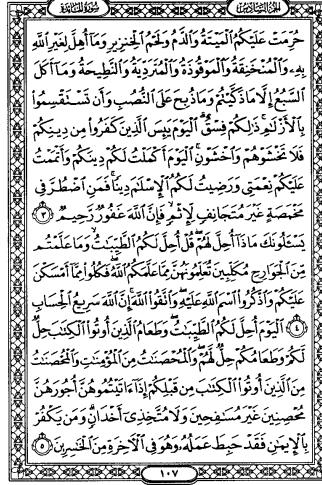 الجزء السادس سورة المائدة
حُرِّمَتْ عَلَيْكُمُ الْمَيْتَةُ وَالدَّمُ وَلَحْمُ الْخِنزِيرِ وَمَا أُهِلَّ لِغَيْرِ اللَّهِ
بِهِ وَالْمُنْخَنِقَةُ وَالْمَوْقُوذَةُ وَالْمُتَرَدِّيَةُ وَالنَّطِيحَةُ وَمَا أَكَلَ
السَّبُعُ إِلَّا مَا ذَكَّيْتُمْ وَمَا ذُبِحَ عَلَى النُّصُبِ وَأَن تَسْتَقْسِمُوا
بِالْأَزْلَٰمِ ذَٰلِكُمْ فِسْقٌ الْيَوْمَ يَئِسَ الَّذِينَ كَفَرُوا مِن دِينِكُمْ
فَلَا تَخْشَوْهُمْ وَاخْشَوْنِ الْيَوْمَ أَكْمَلْتُ لَكُمْ دِينَكُمْ وَأَتْمَمْتُ
عَلَيْكُمْ نِعْمَتِي وَرَضِيتُ لَكُمُ الْإِسْلَٰمَ دِينًا فَمَنِ اضْطُرَّ فِي
مَخْمَصَةٍ غَيْرَ مُتَجَانِفٍ لِّإِثْمٍ فَإِنَّ اللَّهَ غَفُورٌ رَّحِيمٌ ٣
يَسْـَٔلُونَكَ مَاذَا أُحِلَّ لَهُمْ قُلْ أُحِلَّ لَكُمُ الطَّيِّبَٰتُ وَمَا عَلَّمْتُم
مِّنَ الْجَوَارِحِ مُكَلِّبِينَ تُعَلِّمُونَهُنَّ مِمَّا عَلَّمَكُمُ اللَّهُ فَكُلُوا مِمَّا أَمْسَكْنَ
عَلَيْكُمْ وَاذْكُرُوا اسْمَ اللَّهِ عَلَيْهِ وَاتَّقُوا اللَّهَ إِنَّ اللَّهَ سَرِيعُ الْحِسَابِ
٤ الْيَوْمَ أُحِلَّ لَكُمُ الطَّيِّبَٰتُ وَطَعَامُ الَّذِينَ أُوتُوا الْكِتَٰبَ حِلٌّ
لَّكُمْ وَطَعَامُكُمْ حِلٌّ لَّهُمْ وَالْمُحْصَنَٰتُ مِنَ الْمُؤْمِنَٰتِ وَالْمُحْصَنَٰتُ
مِنَ الَّذِينَ أُوتُوا الْكِتَٰبَ مِن قَبْلِكُمْ إِذَا ءَاتَيْتُمُوهُنَّ أُجُورَهُنَّ
مُحْصِنِينَ غَيْرَ مُسَٰفِحِينَ وَلَا مُتَّخِذِي أَخْدَانٍ وَمَن يَكْفُرْ
بِالْإِيمَٰنِ فَقَدْ حَبِطَ عَمَلُهُ وَهُوَ فِي الْآخِرَةِ مِنَ الْخَٰسِرِينَ ٥
١٠٧